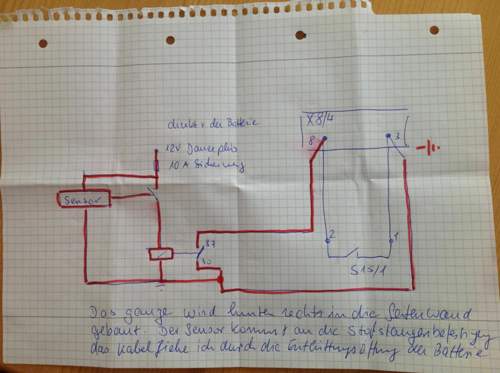 direkt v. der Batterie
X8/4
12V Dauerplus
10 A Sicherung
8
3
Sensor
87
30
2
1
S15/1
Das ganze wird hinten rechts in die Seitenwand
gebaut. Der Sensor kommt an die Stoßstangenbefestigung
das Kabel ziehe ich durch die Entlüftungsöffnung der Batterie